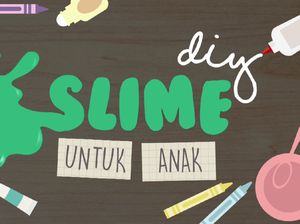 diy
SLIME
UNTUK ANAK